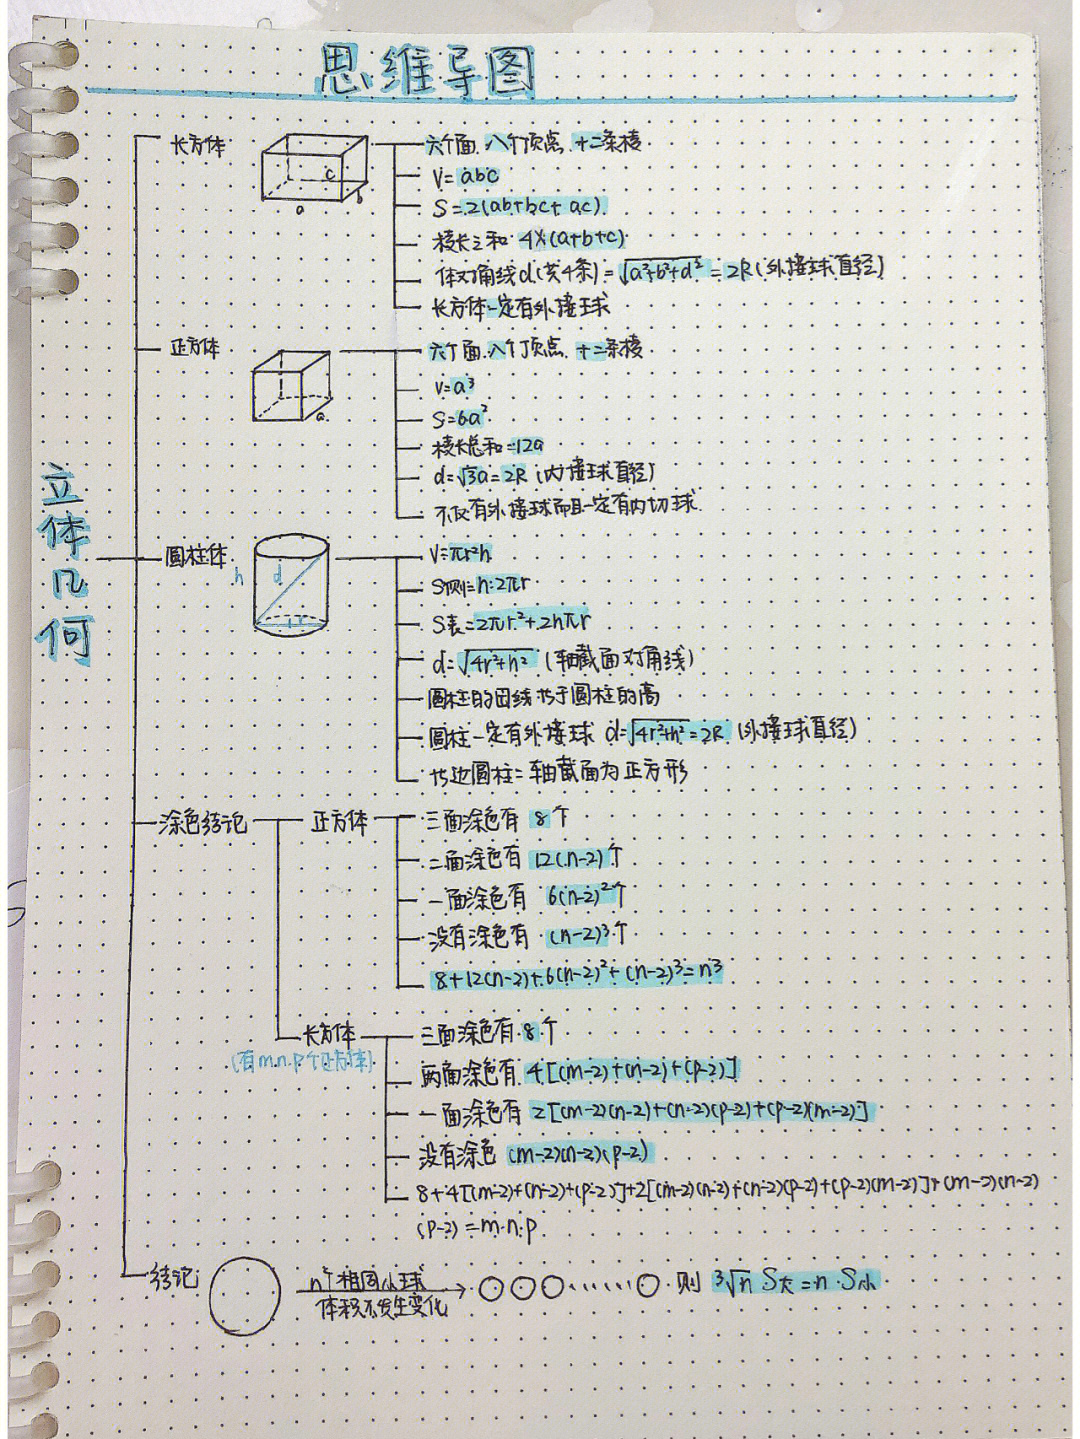 思维导图
立体几何
长方体
a
b
c
六个面.八个顶点.十二条棱
V=abc
S=2(ab+bc+ac)
棱长之和4×(a+b+c)
体对角线d(共4条)=√a²+b²+d²=2R(外接球直径)
长方体一定有外接球
正方体
a
六个面.八个顶点.十二条棱
V=a³
S=6a²
棱长总和=12a
d=√3a=2R(内接球直径)
不仅有外接球而且一定有内切球
圆柱体
h
d
r
V=πr²h
S侧=h·2πr
S表=2πr²+2hπr
d=√4r²+h²(轴截面对角线)
圆柱的母线等于圆柱的高
圆柱一定有外接球 d=√4r²+h²=2R(外接球直径)
等边圆柱=轴截面为正方形
涂色结论
正方体
三面涂色有 8个
二面涂色有 12(n-2)个
一面涂色有 6(n-2)²个
没有涂色有 (n-2)³个
8+12(n-2)+6(n-2)²+(n-2)³=n³
长方体
(有m.n.p个正方体)
三面涂色有8个
两面涂色有4[(m-2)+(n-2)+(p-2)]
一面涂色有2[(m-2)(n-2)+(n-2)(p-2)+(p-2)(m-2)]
没有涂色 (m-2)(n-2)(p-2)
8+4[(m-2)+(n-2)+(p-2)]+2[(m-2)(n-2)+(n-2)(p-2)+(p-2)(m-2)]+(m-2)(n-2)
(p-2)=m·n·p
结论
n个相同小球
体积不发生变化
则 ³√n·S大=n·S小